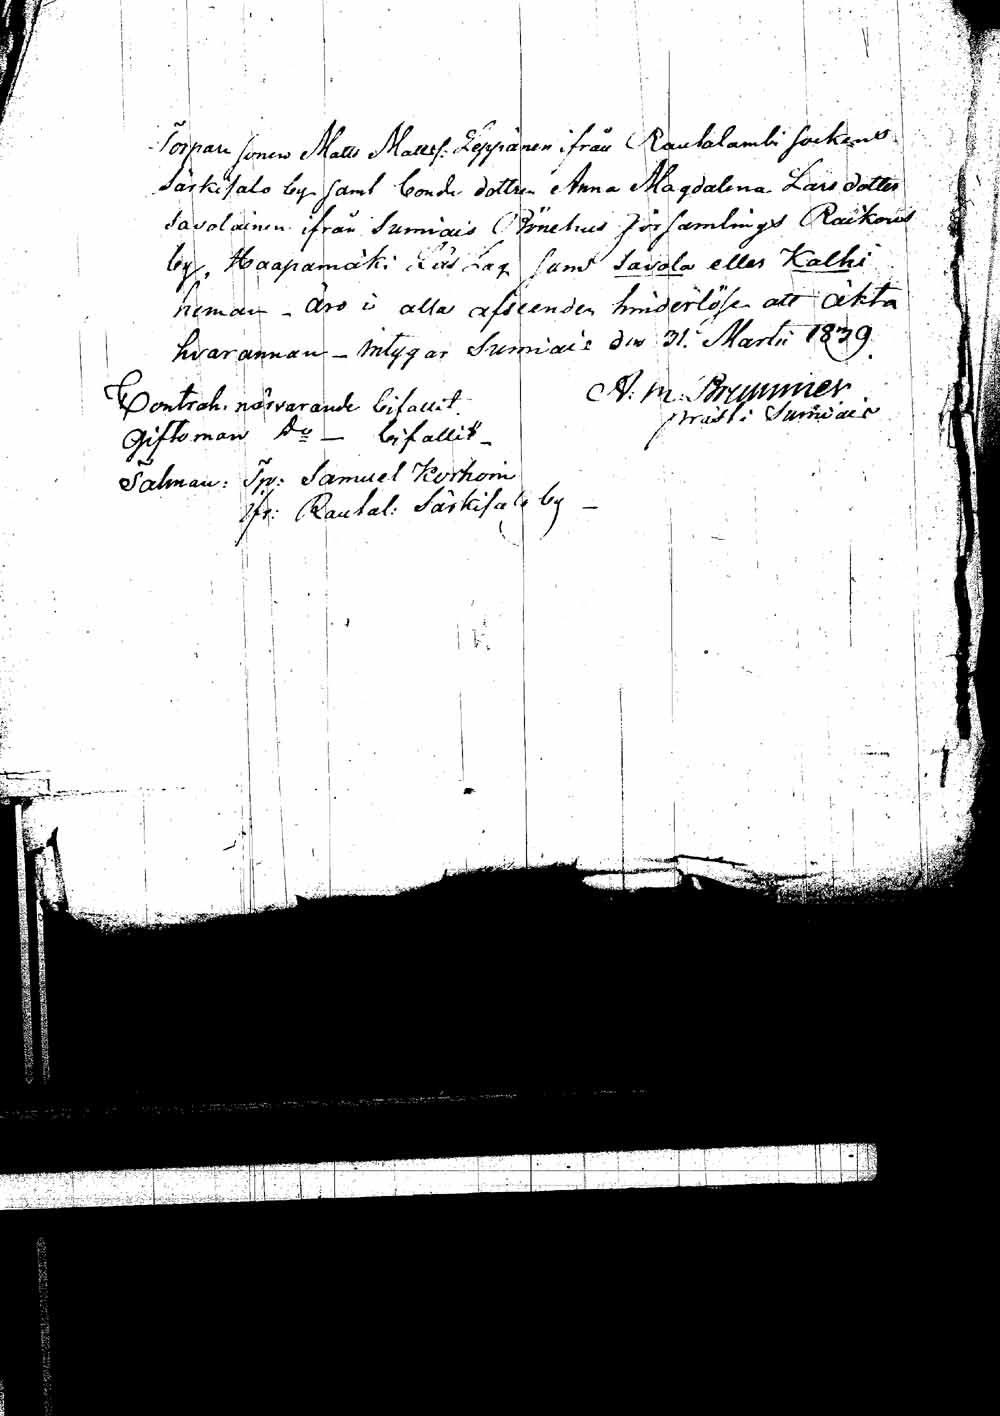 Torpare sonen Matts Mattss: Leppänen ifrån Rautalambi sockens
Särkisalo by samt bonde dottren Anna Magdalena Lars dotter
Savolainen ifrån Sumiais Bönehus församlings Raikous
by, Haapamäki Läs Lag samt Savola eller Kalhi
heman - äro i alla afseenden hinderlöse att äkta
hvarannan - intygar Sumiais den 31: Martii 1839.
A: M: Brummer
Contrah. närvarande bifallit.
præst i Sumiais
Giftoman Do - bifallit -
Talman: Tp: Samuel Korhoin
ifr: Rautal: Särkisalo by -